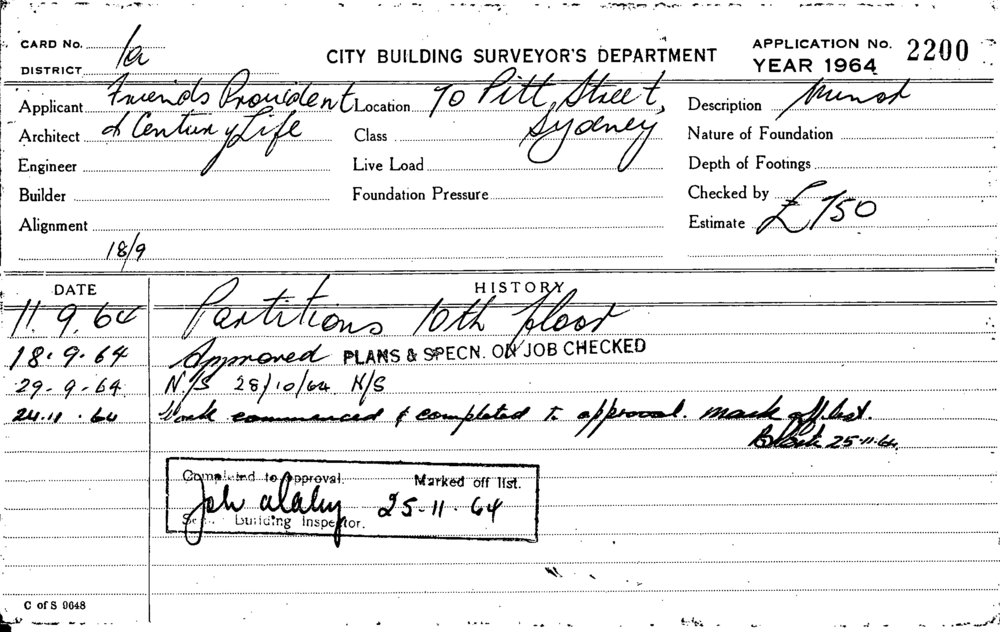 CARD No. 1a CITY BUILDING SURVEYOR'S DEPARTMENT APPLICATION No. 2200
DISTRICT YEAR 1964
Applicant Friends Provident Location 70 Pitt Street, Description Minor
Architect & Century Life Class Sydney Nature of Foundation
Engineer Live Load Depth of Footings
Builder Foundation Pressure Checked by
Alignment Estimate £750
18/9
DATE HISTORY
11.9.64 Partitions 10th floor
18.9.64 Approved PLANS & SPECN. ON JOB CHECKED
29-9-64 N/S 28/10/64 N/S
24.11.64 Work commenced & completed to approval. Mark off list.
25-11-64.
Completed to approval. Marked off list.
25-11-64
Building Inspector.
C of S 9648